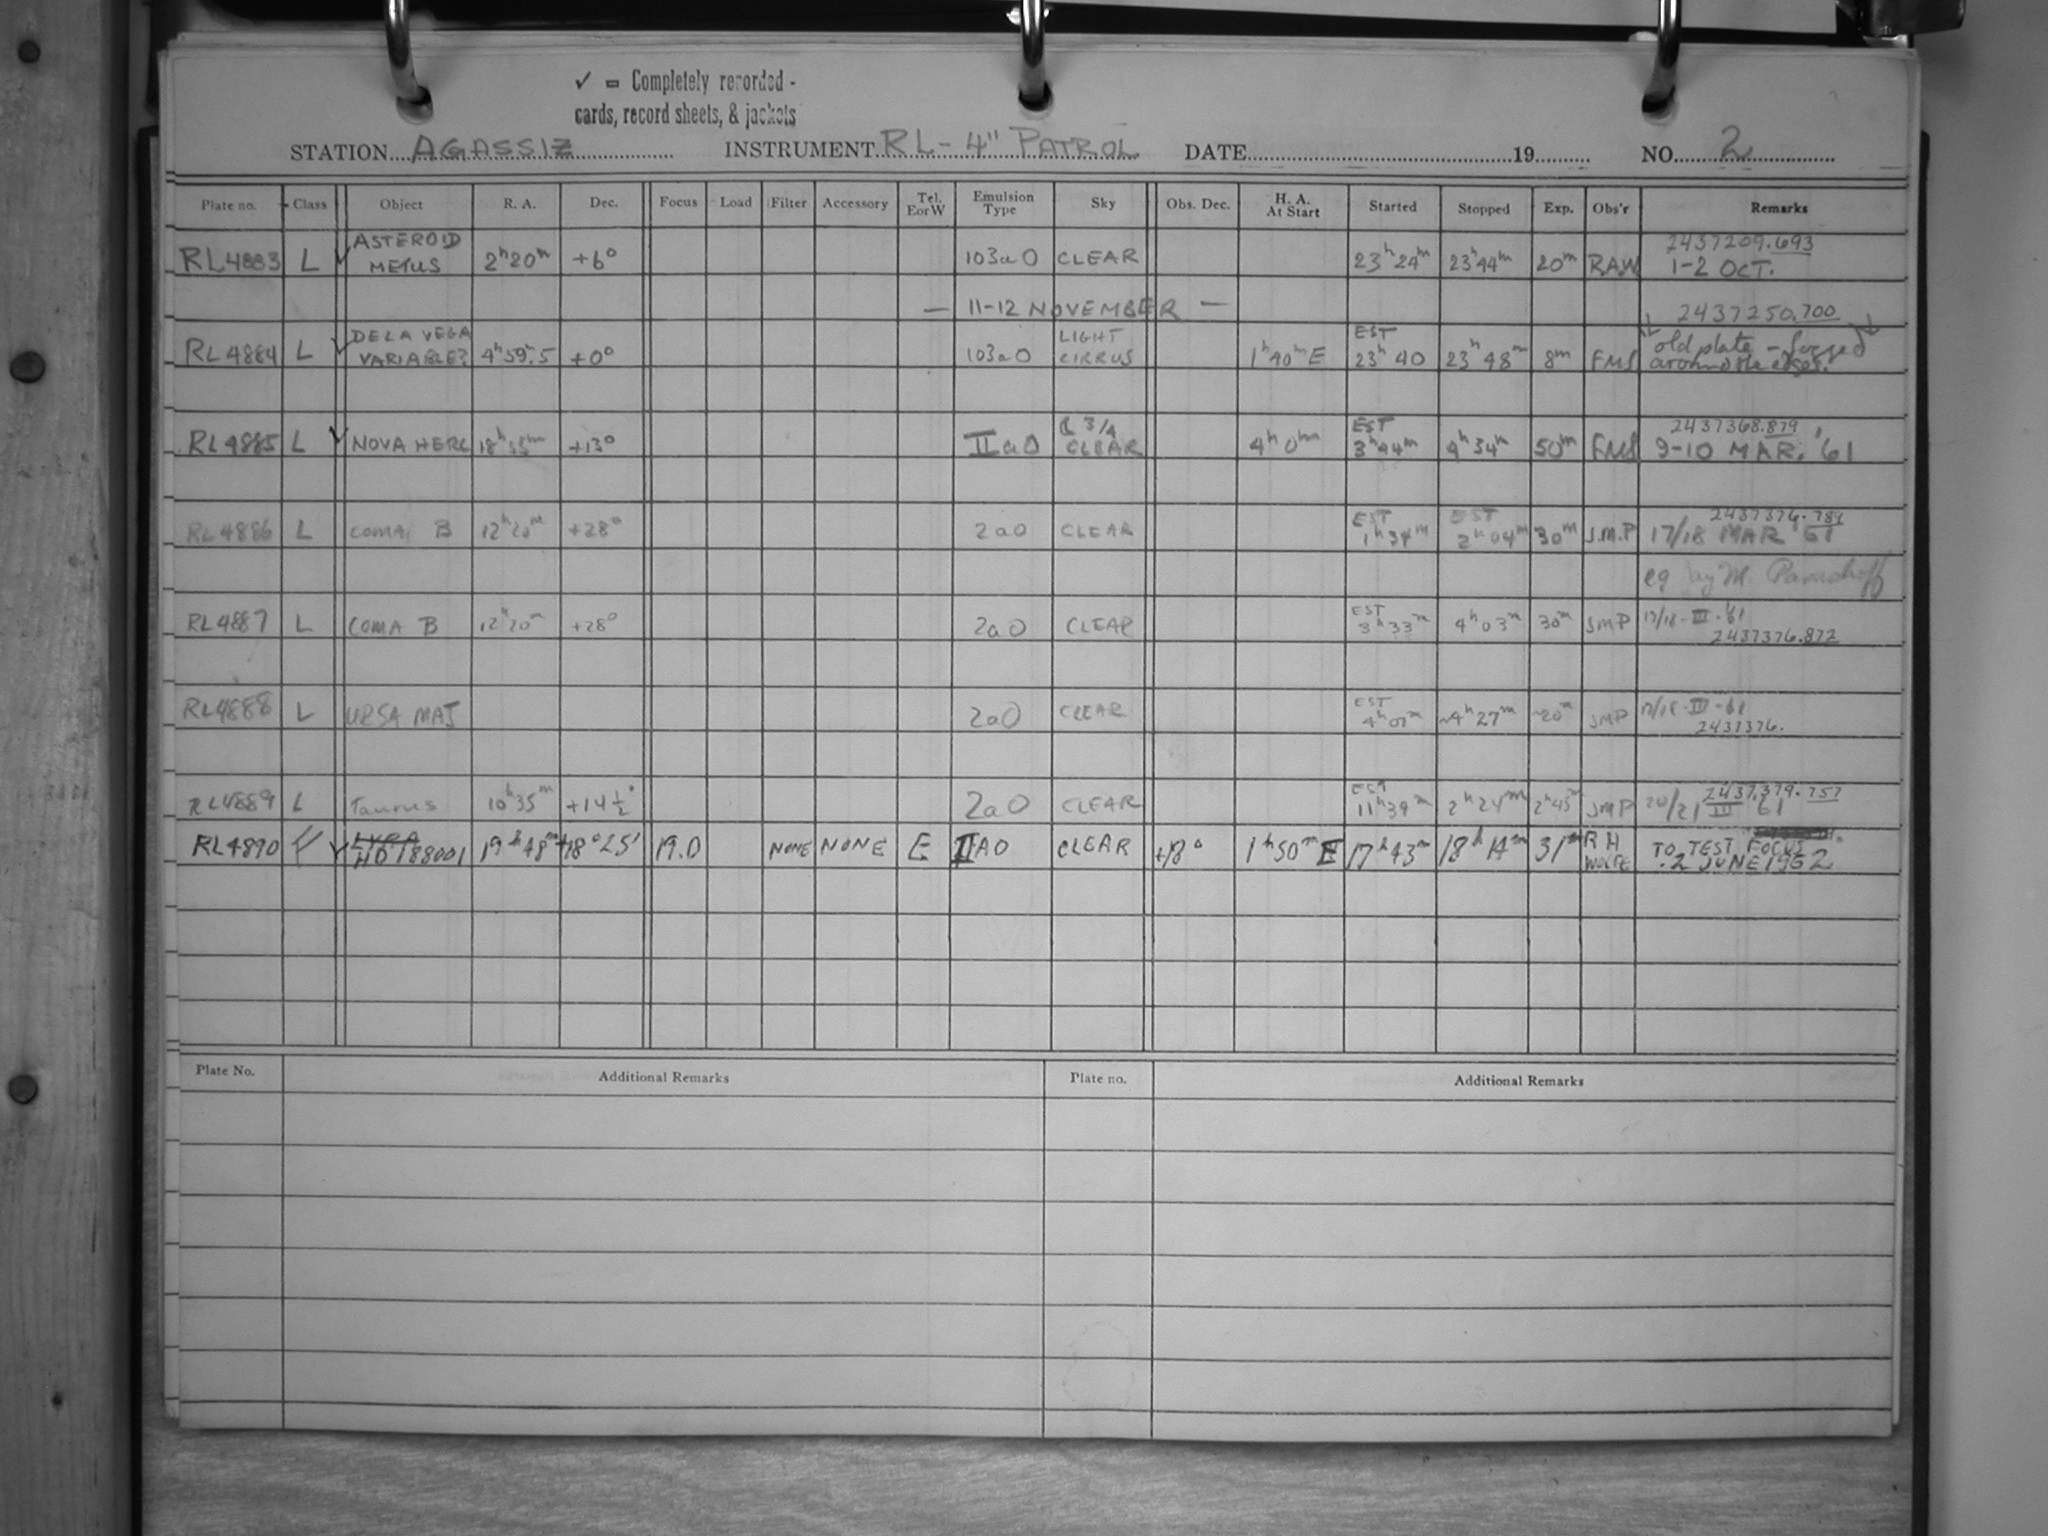 ✓ = Completely recorded -
cards, record sheets, & jackets
STATION AGASSIZ INSTRUMENT RL- 4" PATROL DATE 19 NO. 2
Plate no. Class Object R. A. Dec. Focus Load Filter Accessory Tel. EorW Emulsion Type Sky Obs. Dec. H. A. At Start Started Stopped Exp. Obs'r Remarks
RL4883 L ✓ ASTEROID METUS 2h20m +6° 103aO CLEAR 23h24m 23h44m 20m RAW 2437209.693 1-2 OCT.
— 11-12 NOVEMBER — 2437250.700
RL4884 L ✓ DE LA VEGA VARIABLE? 4h59m.5 +0° 103aO LIGHT CIRRUS 1h40mE EST 23h40 23h48m 8m FMS old plate - fogged around the edges.
RL4885 L ✓ NOVA HERC 18h55m +13° IIaO 3/4 CLEAR 4h0m EST 3h44m 4h34m 50m FMS 2437368.879 9-10 MAR. '61
RL4886 L COMA B 12h20m +28° 2aO CLEAR EST 1h34m EST 2h04m 30m J.M.P 2437376.789 17/18 MAR 61
eg Jay M.
RL4887 L COMA B 12h20m +28° 2aO CLEAR EST 3h33m 4h03m 30m JMP 17/18-III-61 2437376.872
RL4888 L URSA MAJ 2aO CLEAR EST 4h07m ~4h27m ~20m JMP 17/18-III-61 2437376.
RL4889 L Taurus 10h35m +14½° 2aO CLEAR EST 11h39m 2h24m 2h45m JMP 2437379.757 20/21 III 61
RL4890 ✓ LYRA HD 188001 19h48m +18°25' 19.0 NONE NONE E IIAO CLEAR +18° 1h50mE 17h43m 18h14m 31m RH WOLFE TO TEST FOCUS 2 JUNE 1962
Plate No. Additional Remarks Plate no. Additional Remarks